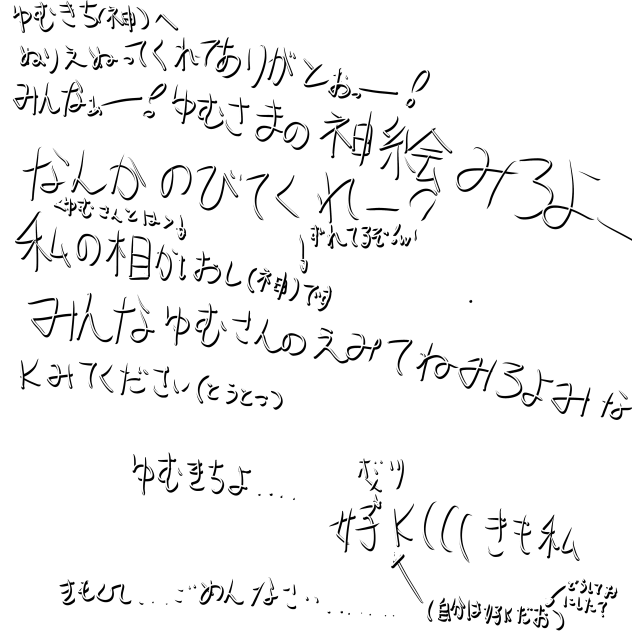 ゆむきち(神)へ
ぬりえぬってくれてありがとぉっー!
みんなぁー!ゆむさまの神絵みろよ
なんかのびてくれー?
<ゆむさんとは>
ずれてるぞ!w
私の相がtおし(神)です
みんなゆむさんのえみてねみろよみな
Kみてください(とうとつ)
ゆむきちよ....
ボツ
好K(((きも私
きもくて...ごめんなさい........
(自分は好Kだお)
どうしてお
にした?